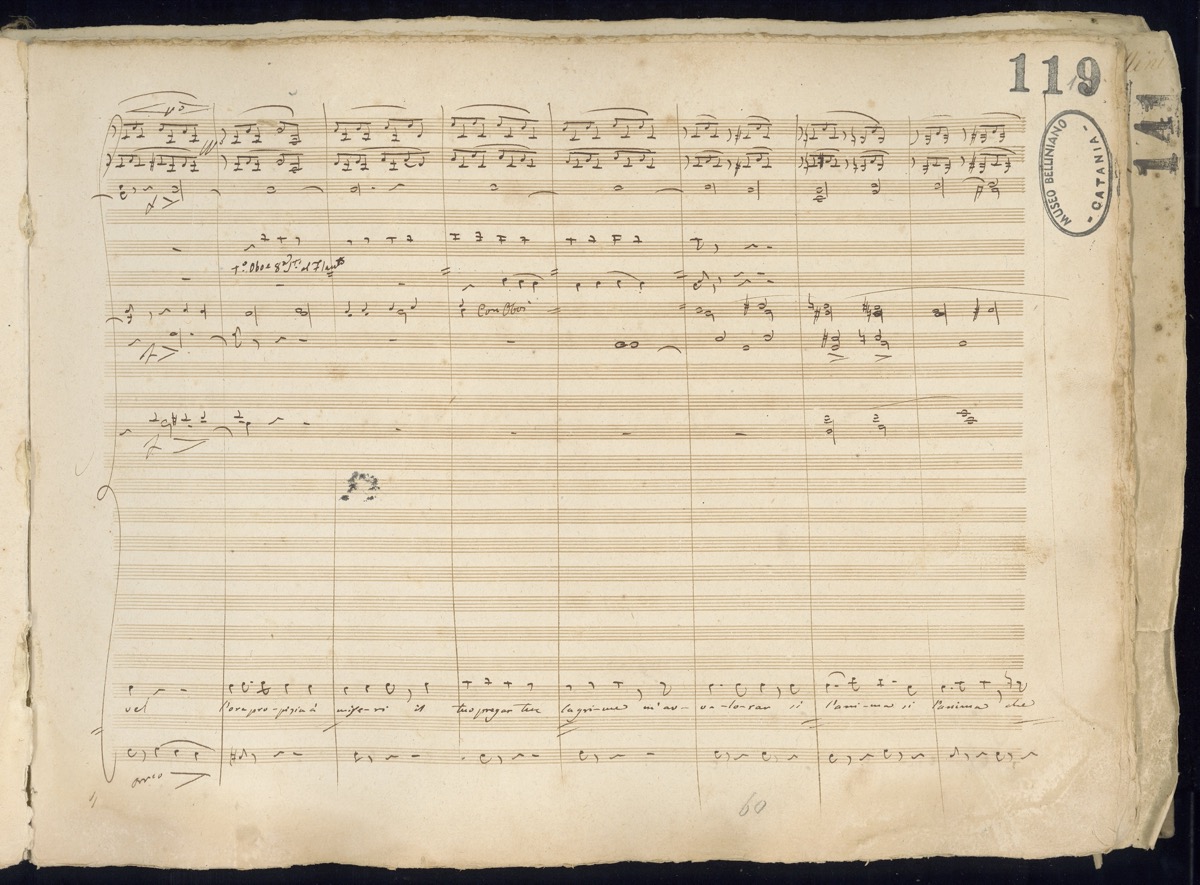 119
141
MUSEO BELLINIANO
- CATANIA -
Con Oboi
vel l'ora pro-pizia a miseri il tuo pregar tue lagrime m'av- va-lorar si l'ani-ma si l'anima che
arco
60